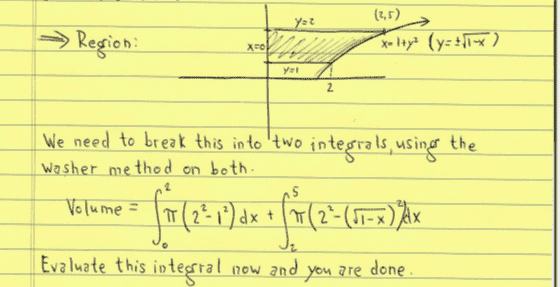 y=2 (2,5)
⇒ Region: x=0 x=1+y² (y=±√1-x)
y=1
2
We need to break this into two integrals, using the
washer method on both.
Volume = ∫₀² π(2²-1²)dx + ∫₂⁵ π(2²-(√1-x)²)dx
Evaluate this integral now and you are done.